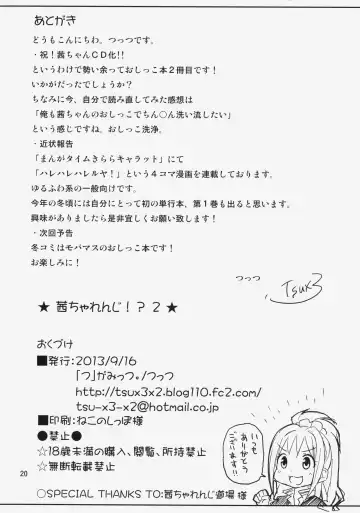 あとがき
どうもこんにちわ。つっつです。
・祝！茜ちゃんCD化!!
というわけで勢い余っておしっこ本２冊目です！
いかがだったでしょうか？
ちなみに今、自分で読み直してみた感想は
「俺も茜ちゃんのおしっこでちん○ん洗い流したい」
という感じですね。おしっこ洗浄。
・近状報告
「まんがタイムきららキャラット」にて
「ハレハレハレルヤ！」という４コマ漫画を連載しております。
ゆるふわ系の一般向けです。
今年の冬頃には自分にとって初の単行本、第１巻も出ると思います。
興味がありましたら是非宜しくお願い致します！
・次回予告
冬コミはモバマスのおしっこ本です！
お楽しみに！
つっつ
Tsux3
★ 茜ちゃれんじ！？２ ★
おくづけ
■発行：2013/9/16
「つ」がみっつ。/つっつ
http://tsux3x2.blog110.fc2.com/
tsu-x3-x2@hotmail.co.jp
■印刷：ねこのしっぽ様
●禁止●
☆18歳未満の購入、閲覧、所持禁止
☆無断転載禁止
○SPECIAL THANKS TO:茜ちゃれんじ道場 様
いつも
ありがとう
ございます!!
20